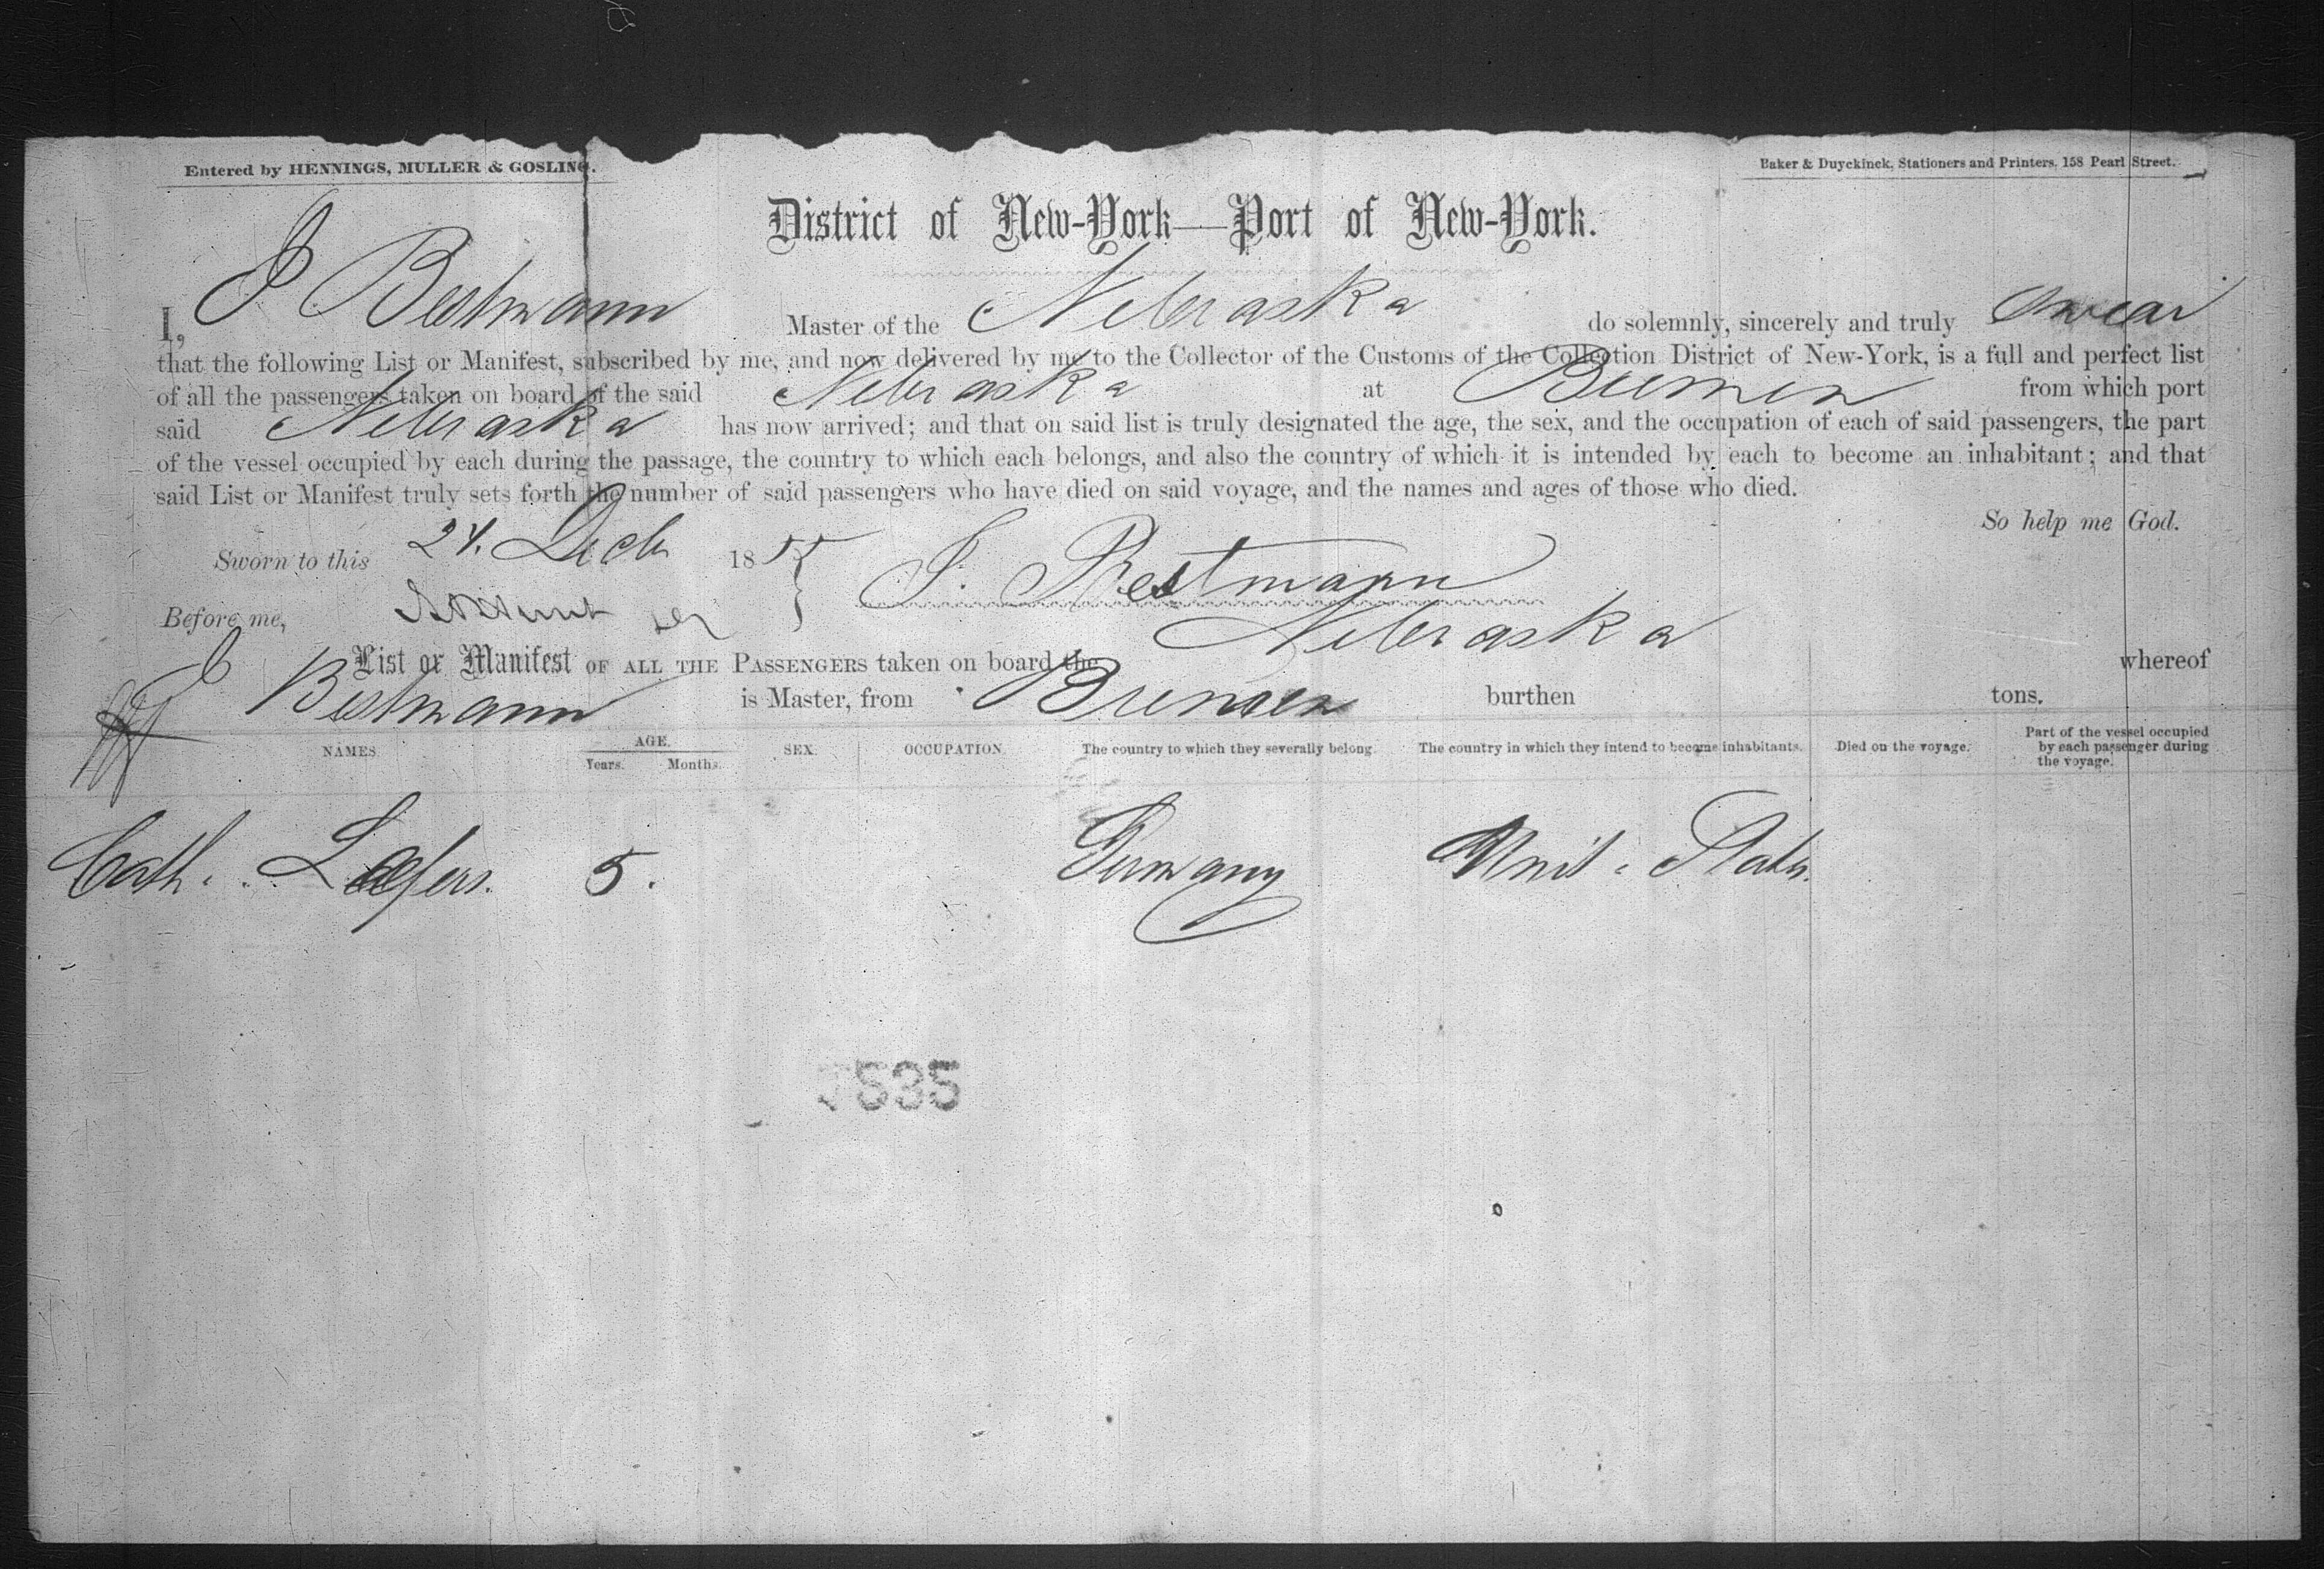 Entered by HENNINGS, MULLER & GOSLING.
Baker & Duyckinck, Stationers and Printers, 158 Pearl Street.
District of New-York—Port of New-York.
I, J Bestmann Master of the Nebraska do solemnly, sincerely and truly swear
that the following List or Manifest, subscribed by me, and now delivered by me to the Collector of the Customs of the Collection District of New-York, is a full and perfect list
of all the passengers taken on board of the said Nebraska at Bremen from which port
said Nebraska has now arrived; and that on said list is truly designated the age, the sex, and the occupation of each of said passengers, the part
of the vessel occupied by each during the passage, the country to which each belongs, and also the country of which it is intended by each to become an inhabitant; and that
said List or Manifest truly sets forth the number of said passengers who have died on said voyage, and the names and ages of those who died.
So help me God.
Sworn to this 24. Decb 1855 J. Bestmann
Before me,
List or Manifest OF ALL THE PASSENGERS taken on board the Nebraska whereof
J Bestmann is Master, from Bremen burthen tons.
NAMES. AGE. Years. Months. SEX. OCCUPATION. The country to which they severally belong. The country in which they intend to become inhabitants. Died on the voyage. Part of the vessel occupied by each passenger during the voyage.
Cath. 5. Germany Unit. States.
535